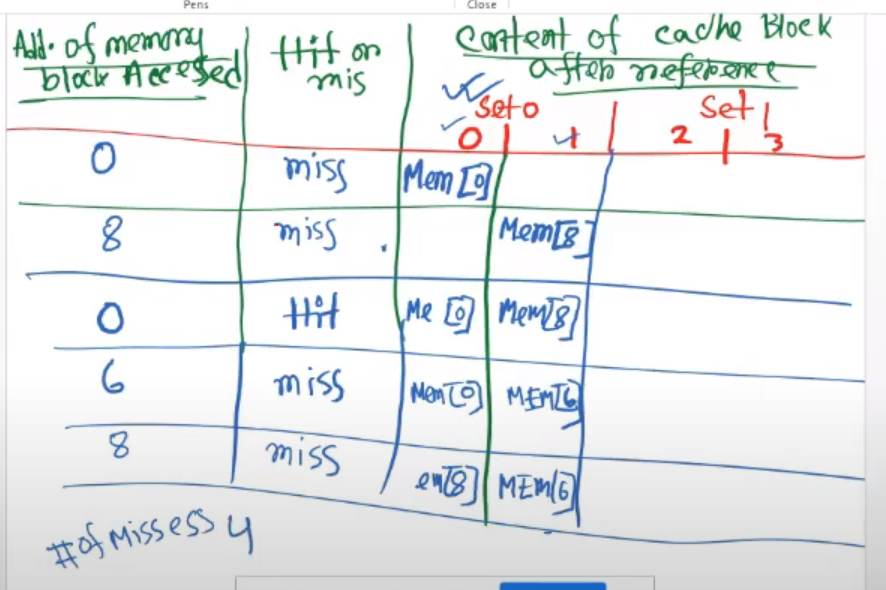 Pens Close
Add. of memory
block Accesed
Hit or
mis
Content of cache Block
after reference
Set 0 Set 1
0 1 2 3
0 miss Mem[0]
8 miss Mem[8]
0 Hit Me[0] Mem[8]
6 miss Mem[0] MEm[6]
8 miss em[8] MEm[6]
# of Missess 4